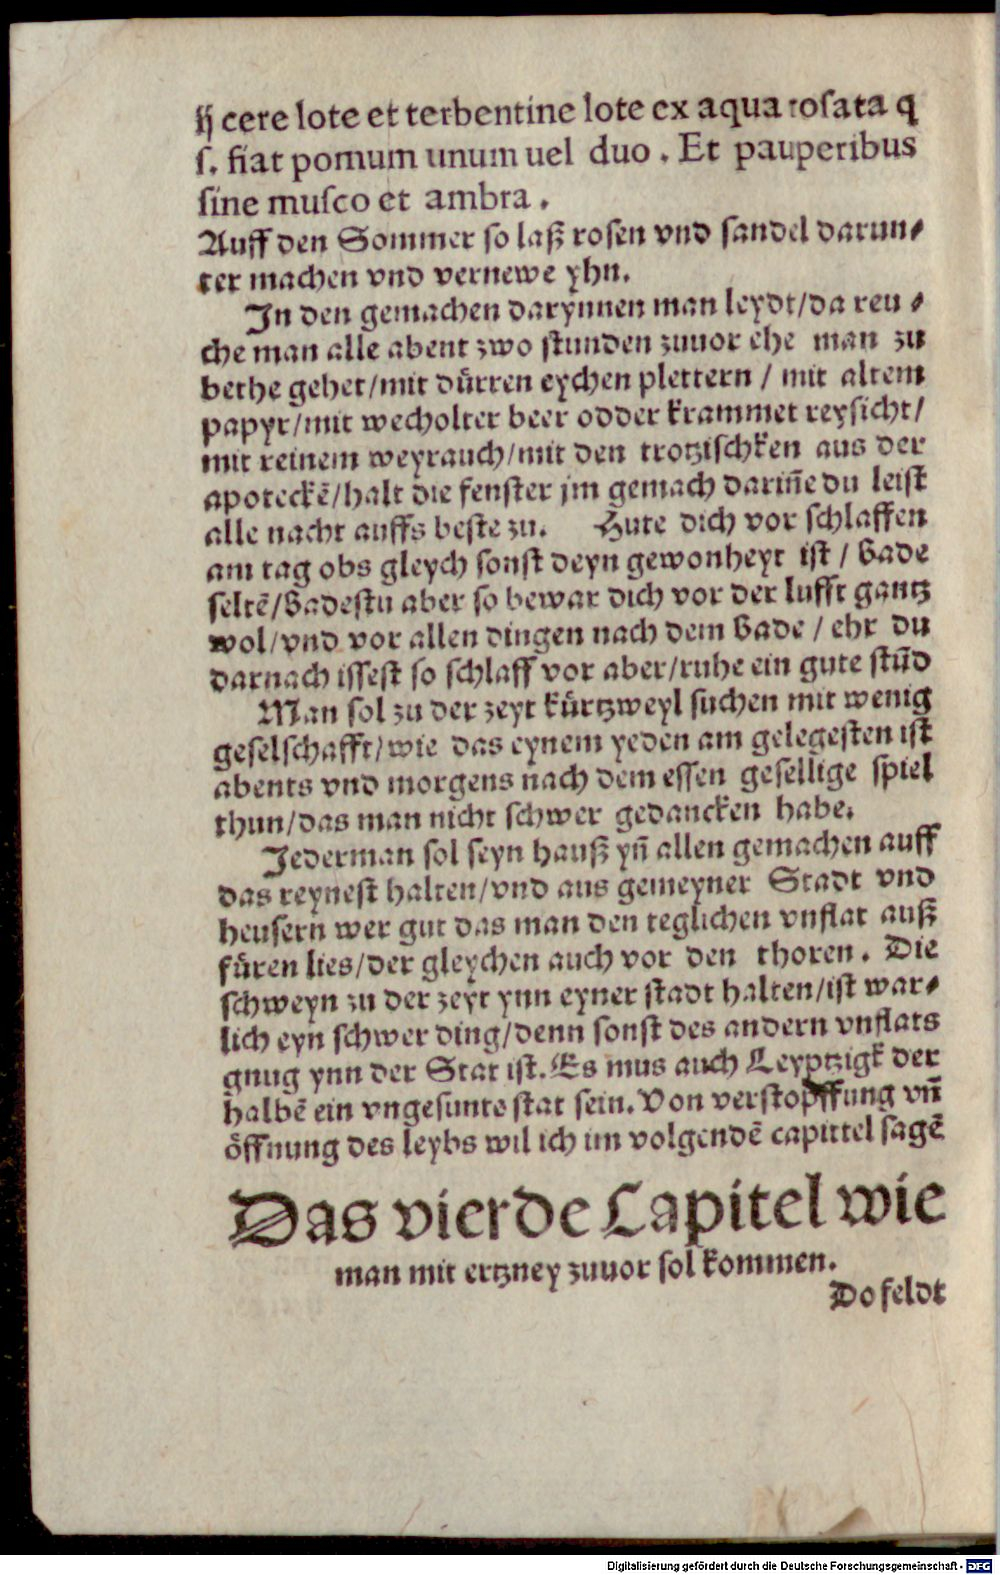 ij cere lote et terbentine lote ex aqua rosata q
s. fiat pomum unum uel duo. Et pauperibus
sine musco et ambra.
Auff den Sommer so laß rosen vnd sandel darun⸗
ter machen vnd vernewe yhn.
In den gemachen darynnen man leydt/da reu⸗
che man alle abent zwo stunden zuuor ehe man zu
bethe gehet/mit dürren eychen plettern/mit altem
papyr/mit wecholter beer odder krammet reysicht/
mit reinem weyrauch/mit den trotzischken aus der
apoteckē/halt die fenster jm gemach dariñe du leist
alle nacht auffs beste zu. Hute dich vor schlaffen
am tag obs gleych sonst deyn gewonheyt ist/Bade
seltē/Badestu aber so bewar dich vor der lufft gantz
wol/vnd vor allen dingen nach dem Bade/ehr du
darnach issest so schlaff vor aber/ruhe ein gute stūd
Man sol zu der zeyt kürtzweyl suchen mit wenig
geselschafft/wie das eynem yeden am gelegesten ist
abents vnd morgens nach dem essen gesellige spiel
thun/das man nicht schwer gedancken habe.
Jederman sol seyn hauß yñ allen gemachen auff
das reynest halten/vnd aus gemeyner Stadt vnd
heusern wer gut das man den teglichen vnflat auß
füren lies/der gleychen auch vor den thoren. Die
schweyn zu der zeyt ynn eyner stadt halten/ist war⸗
lich eyn schwer ding/denn sonst des andern vnflats
gnug ynn der Stat ist. Es mus auch Leyptzigk der
halbē ein vngesunte stat sein. Von verstopffung vñ
öffnung des leybs wil ich im volgendē capittel sagē
Das vierde Capitel wie
man mit ertzney zuuor sol kommen.
Do feldt
Digitalisierung gefördert durch die Deutsche Forschungsgemeinschaft - DFG